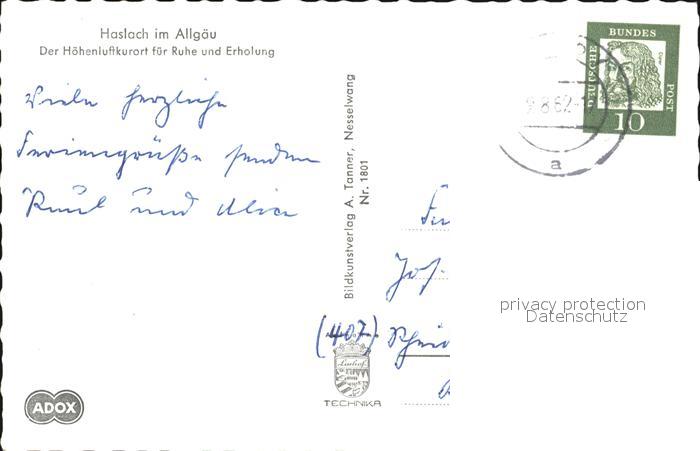 Haslach im Allgäu
Der Höhenluftkurort für Ruhe und Erholung
Viele herzliche
Feriengrüße senden
und
Bildkunstverlag A. Tanner, Nesselwang
Nr. 1801
DEUTSCHE BUNDES POST
Dürer
10
8.62
a
Jos.
(407) Rhei
privacy protection
Datenschutz
Linhof
TECHNIKA
ADOX